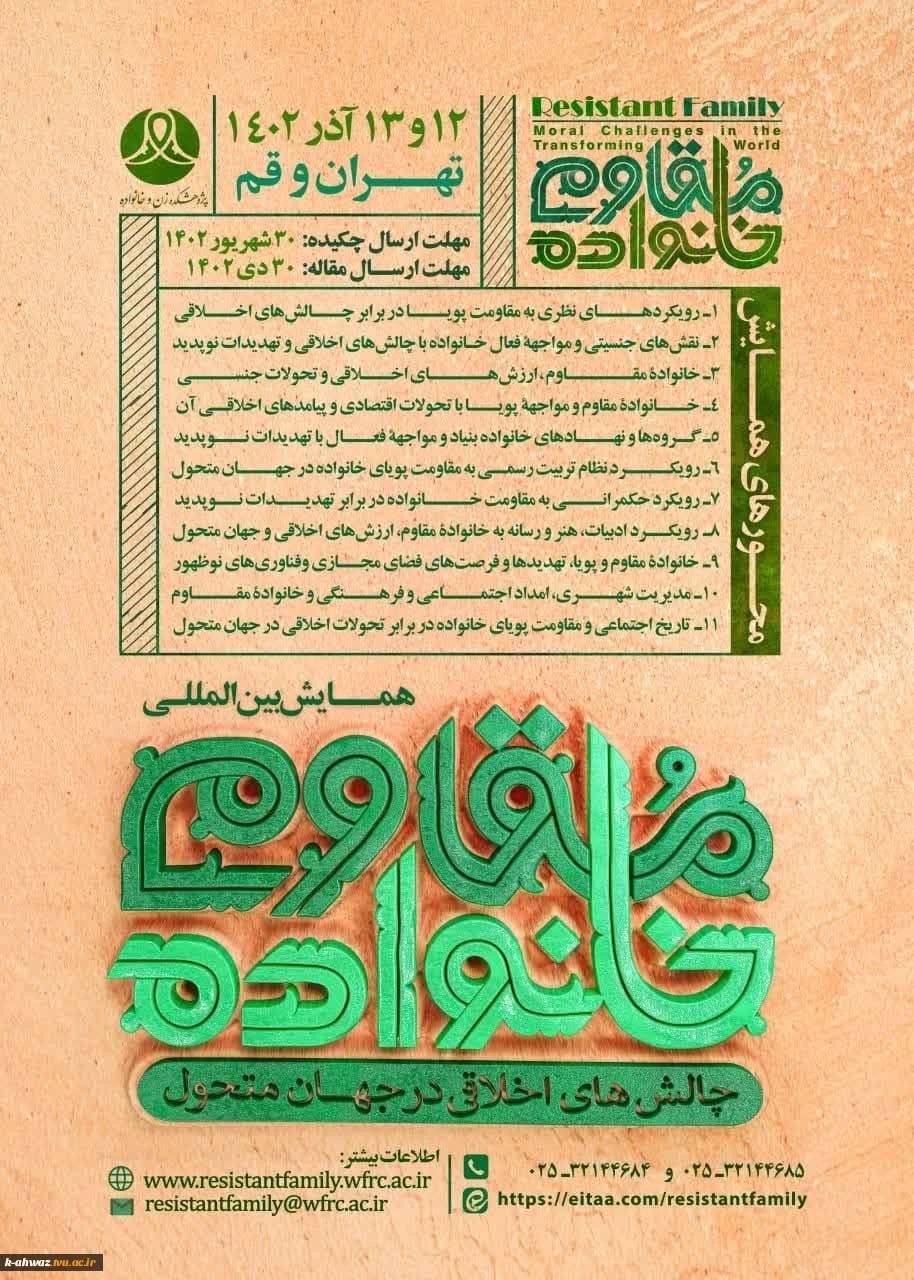 Resistant Family
Moral Challenges in the
Transforming World
مُقاوم
خانواده
۱۲ و ۱۳ آذر ۱۴۰۲
تهران و قم
پژوهشکده زن و خانواده
مهلت ارسال چکیده: ۳۰ شهریور ۱۴۰۲
مهلت ارسال مقاله: ۳۰ دی ۱۴۰۲
محورهای همایش
۱ـ رویکردهای نظری به مقاومت پویا در برابر چالش‌های اخلاقی
۲ـ نقش‌های جنسیتی و مواجههٔ فعال خانواده با چالش‌های اخلاقی و تهدیدات نوپدید
۳ـ خانوادهٔ مقاوم، ارزش‌های اخلاقی و تحولات جنسی
۴ـ خانوادهٔ مقاوم و مواجههٔ پویا با تحولات اقتصادی و پیامدهای اخلاقی آن
۵ـ گروه‌ها و نهادهای خانواده بنیاد و مواجههٔ فعال با تهدیدات نوپدید
۶ـ رویکرد نظام تربیت رسمی به مقاومت پویای خانواده در جهان متحول
۷ـ رویکرد حکمرانی به مقاومت خانواده در برابر تهدیدات نوپدید
۸ـ رویکرد ادبیات، هنر و رسانه به خانوادهٔ مقاوم، ارزش‌های اخلاقی و جهان متحول
۹ـ خانوادهٔ مقاوم و پویا، تهدیدها و فرصت‌های فضای مجازی وفناوری‌های نوظهور
۱۰ـ مدیریت شهری، امداد اجتماعی و فرهنگی و خانوادهٔ مقاوم
۱۱ـ تاریخ اجتماعی و مقاومت پویای خانواده در برابر تحولات اخلاقی در جهان متحول
همایش بین‌المللی
مُقاوم
خانواده
چالش های اخلاقی در جهان متحول
اطلاعات بیشتر:
۰۲۵-۳۲۱۴۴۶۸۵ و ۰۲۵-۳۲۱۴۴۶۸۴
www.resistantfamily.wfrc.ac.ir
https://eitaa.com/resistantfamily
resistantfamily@wfrc.ac.ir
k-ahwaz.tvu.ac.ir